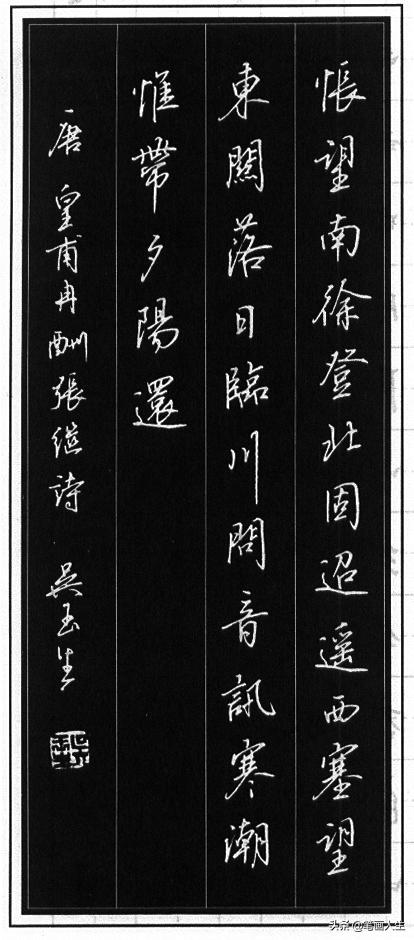 悵望南徐登北固迢遥西塞望
東關落日臨川問音訊寒潮
惟帶夕陽還
唐 皇甫冉酬張继詩 吴玉生
头条@笔画人生